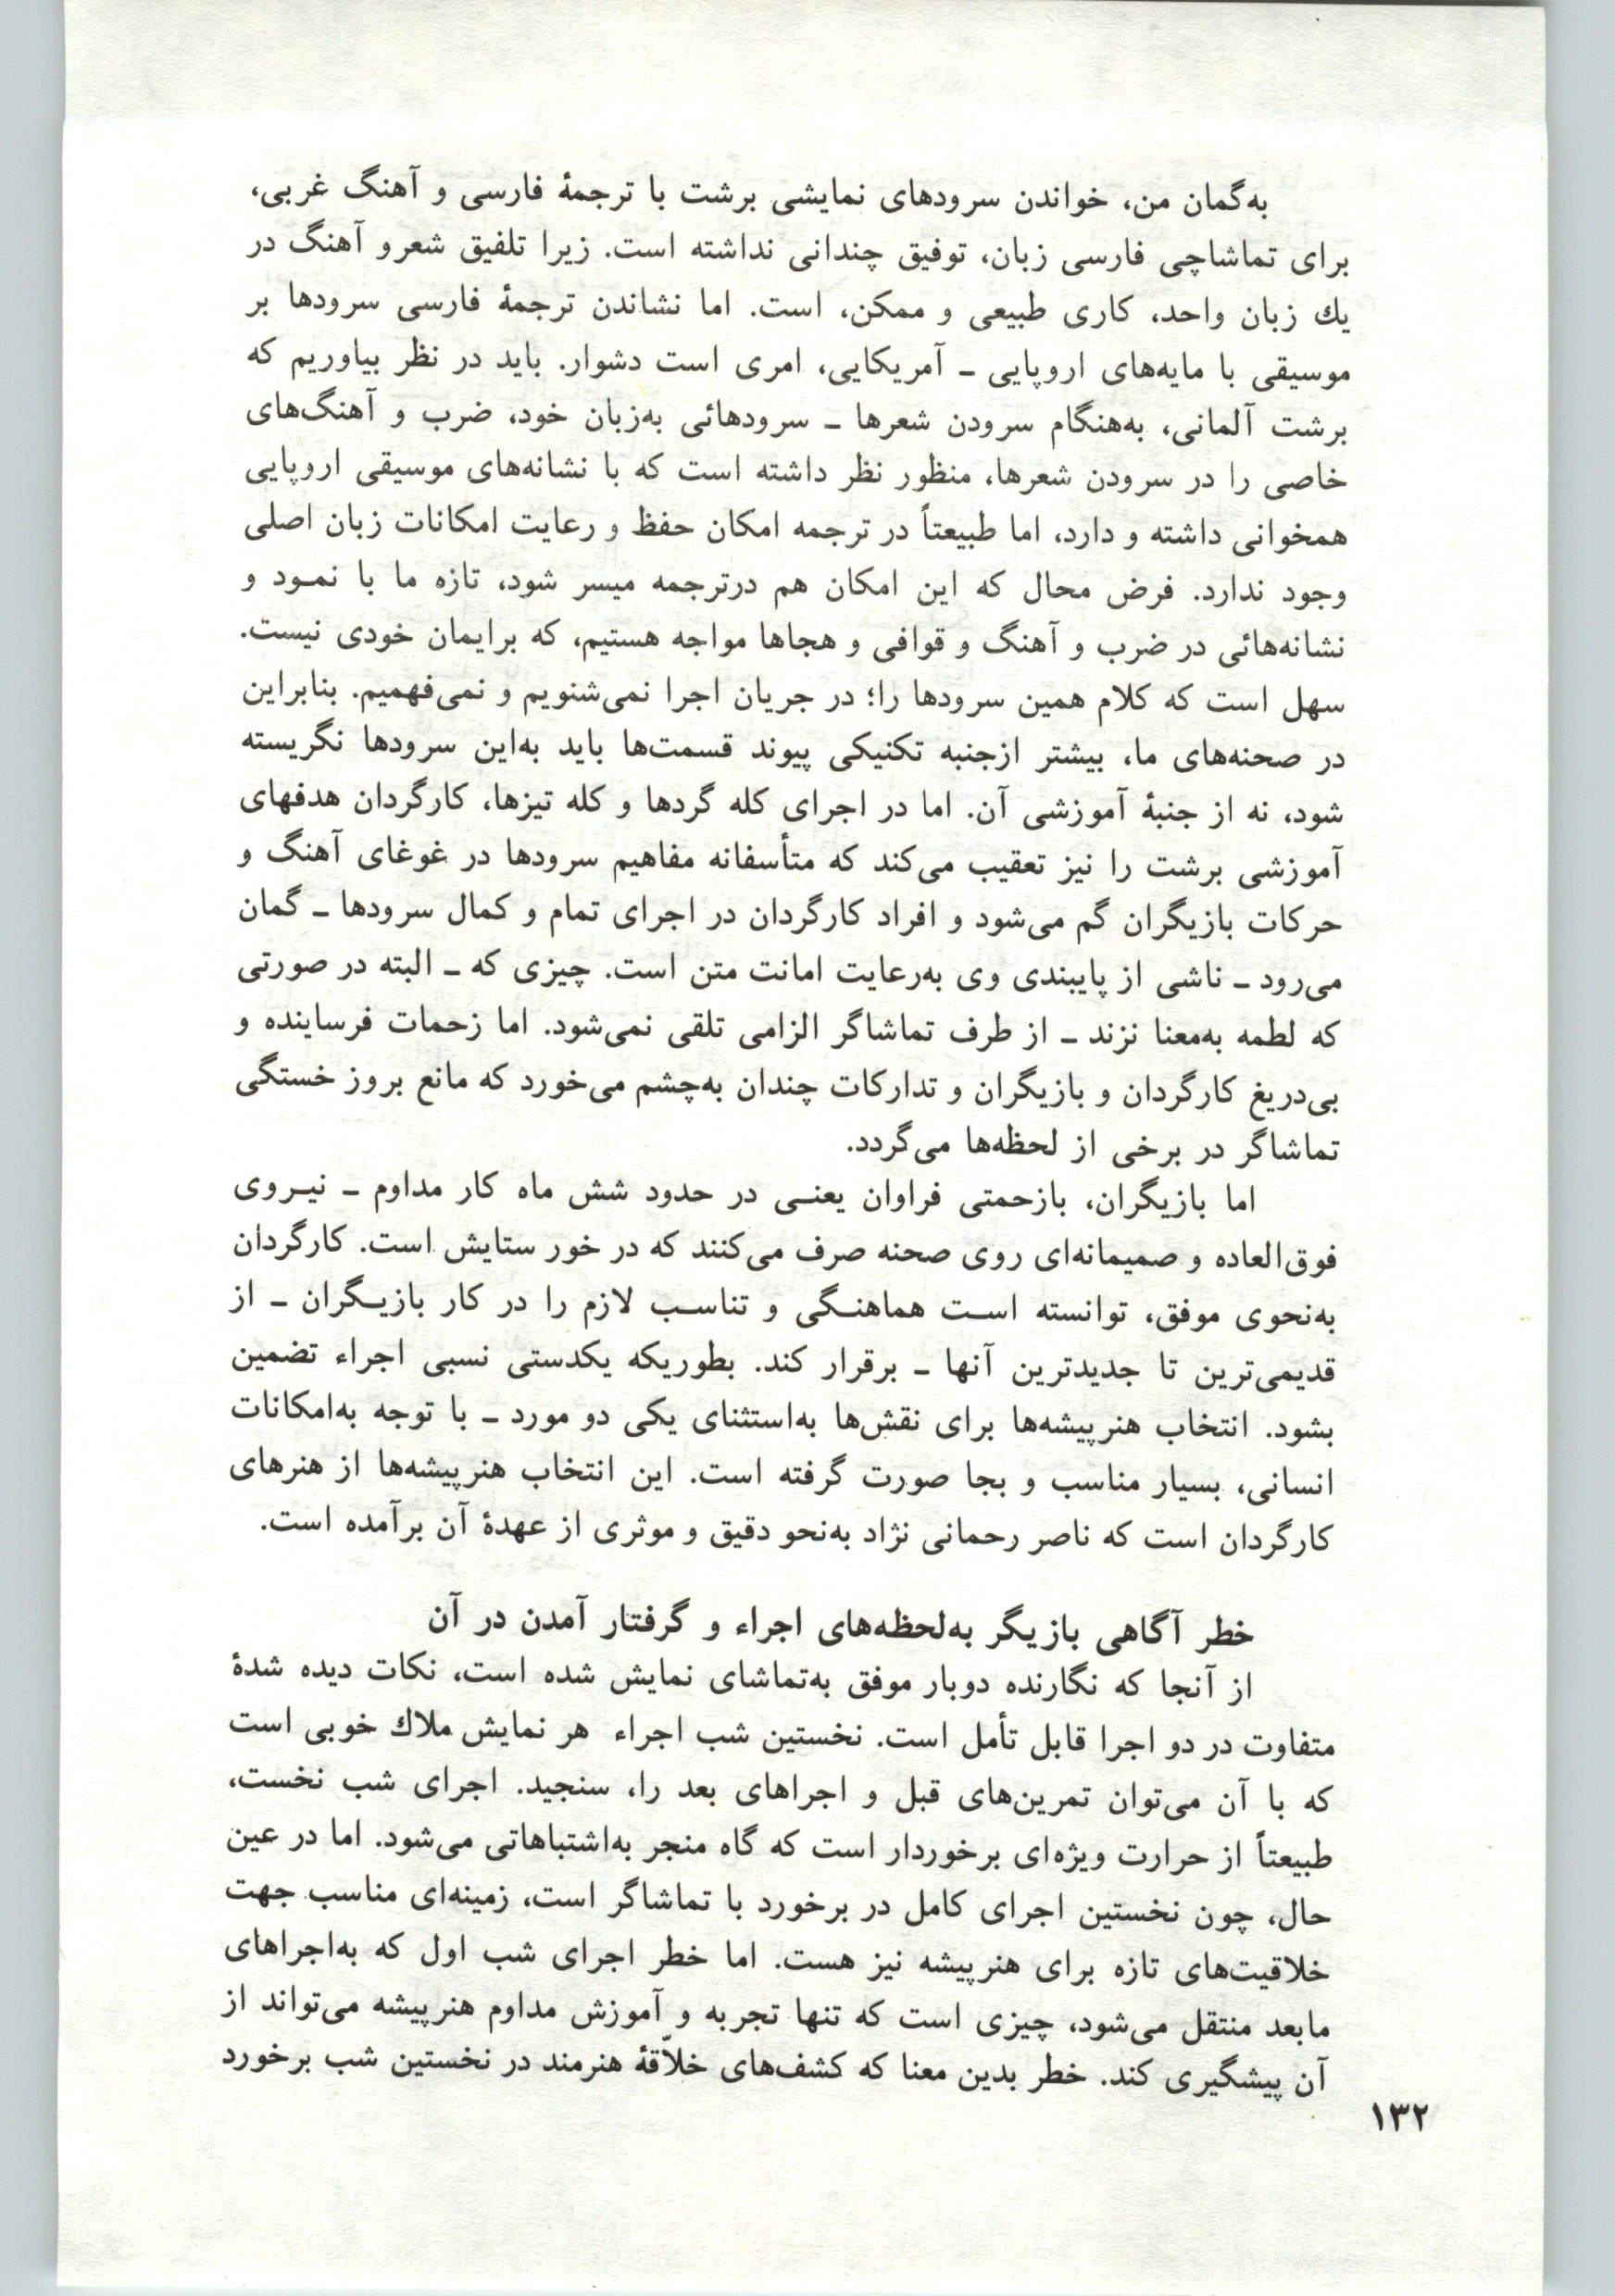 به‌گمان من، خواندن سرودهای نمایشی برشت با ترجمهٔ فارسی و آهنگ غربی،
برای تماشاچی فارسی زبان، توفیق چندانی نداشته است. زیرا تلفیق شعرو آهنگ در
یك زبان واحد، کاری طبیعی و ممکن، است. اما نشاندن ترجمهٔ فارسی سرودها بر
موسیقی با مایه‌های اروپایی ـ آمریکایی، امری است دشوار. باید در نظر بیاوریم که
برشت آلمانی، به‌هنگام سرودن شعرها ـ سرودهائی به‌زبان خود، ضرب و آهنگ‌های
خاصی را در سرودن شعرها، منظور نظر داشته است که با نشانه‌های موسیقی اروپایی
همخوانی داشته و دارد، اما طبیعتاً در ترجمه امکان حفظ و رعایت امکانات زبان اصلی
وجود ندارد. فرض محال که این امکان هم درترجمه میسر شود، تازه ما با نمـود و
نشانه‌هائی در ضرب و آهنگ و قوافی و هجاها مواجه هستیم، که برایمان خودی نیست.
سهل است که کلام همین سرودها را؛ در جریان اجرا نمی‌شنویم و نمی‌فهمیم. بنابراین
در صحنه‌های ما، بیشتر ازجنبه تکنیکی پیوند قسمت‌ها باید به‌این سرودها نگریسته
شود، نه از جنبهٔ آموزشی آن. اما در اجرای کله گردها و کله تیزها، کارگردان هدفهای
آموزشی برشت را نیز تعقیب می‌کند که متأسفانه مفاهیم سرودها در غوغای آهنگ و
حرکات بازیگران گم می‌شود و افراد کارگردان در اجرای تمام و کمال سرودها ـ گمان
می‌رود ـ ناشی از پایبندی وی به‌رعایت امانت متن است. چیزی که ـ البته در صورتی
که لطمه به‌معنا نزند ـ از طرف تماشاگر الزامی تلقی نمی‌شود. اما زحمات فرساینده و
بی‌دریغ کارگردان و بازیگران و تدارکات چندان به‌چشم می‌خورد که مانع بروز خستگی
تماشاگر در برخی از لحظه‌ها می‌گردد.
اما بازیگران، بازحمتی فراوان یعنـی در حدود شش ماه کار مداوم ـ نیـروی
فوق‌العاده و صمیمانه‌ای روی صحنه صرف می‌کنند که در خور ستایش است. کارگردان
به‌نحوی موفق، توانسته اسـت هماهنـگی و تناسـب لازم را در کار بازیـگران ـ از
قدیمی‌ترین تا جدیدترین آنها ـ برقرار کند. بطوریکه یکدستی نسبی اجراء تضمین
بشود. انتخاب هنرپیشه‌ها برای نقش‌ها به‌استثنای یکی دو مورد ـ با توجه به‌امکانات
انسانی، بسیار مناسب و بجا صورت گرفته است. این انتخاب هنرپیشه‌ها از هنرهای
کارگردان است که ناصر رحمانی نژاد به‌نحو دقیق و موثری از عهدهٔ آن برآمده است.
خطر آگاهی بازیگر به‌لحظه‌های اجراء و گرفتار آمدن در آن
از آنجا که نگارنده دوبار موفق به‌تماشای نمایش شده است، نکات دیده شدهٔ
متفاوت در دو اجرا قابل تأمل است. نخستین شب اجراء هر نمایش ملاك خوبی است
که با آن می‌توان تمرین‌های قبل و اجراهای بعد را، سنجید. اجرای شب نخست،
طبیعتاً از حرارت ویژه‌ای برخوردار است که گاه منجر به‌اشتباهاتی می‌شود. اما در عین
حال، چون نخستین اجرای کامل در برخورد با تماشاگر است، زمینه‌ای مناسب جهت
خلاقیت‌های تازه برای هنرپیشه نیز هست. اما خطر اجرای شب اول که به‌اجراهای
مابعد منتقل می‌شود، چیزی است که تنها تجربه و آموزش مداوم هنرپیشه می‌تواند از
آن پیشگیری کند. خطر بدین معنا که کشف‌های خلاّقهٔ هنرمند در نخستین شب برخورد
۱۳۲